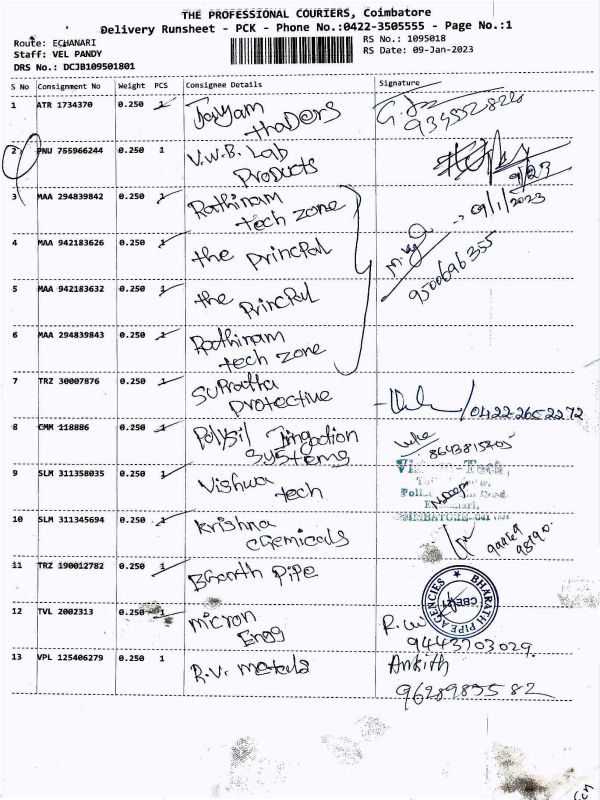 THE PROFESSIONAL COURIERS, Coimbatore
Delivery Runsheet - PCK - Phone No.:0422-3505555 - Page No.:1
Route: ECHANARI
RS No.: 1095018
Staff: VEL PANDY
RS Date: 09-Jan-2023
DRS No.: DCJB109501801
S No Consignment No Weight PCS Consignee Details Signature
1 ATR 1734370 0.250 1 Jayam
thaders
9345528220
2 PNU 755966244 0.250 1 V.W.B. Lab
Products
3 MAA 294839842 0.250 1 Rathinam
tech zone
09/1/2023
4 MAA 942183626 0.250 1 the principal
9500696355
5 MAA 942183632 0.250 1 the principal
6 MAA 294839843 0.250 1 Rathinam
tech zone
7 TRZ 30007876 0.250 1 Supratha
protective
0422-2652272
8 CMM 118886 0.250 1 Polysil Irrigation
systems
9 SLM 311358035 0.250 1 Vishwa
tech
10 SLM 311345694 0.250 1 Krishna
chemicals
11 TRZ 190012782 0.250 1 Bharth Pipe
BHARATH PIPE AGENCIES
12 TVL 2002313 0.250 1 micron
Engg
9443703029
13 VPL 125406279 0.250 1 R.V. metals
Ankith
9628983582